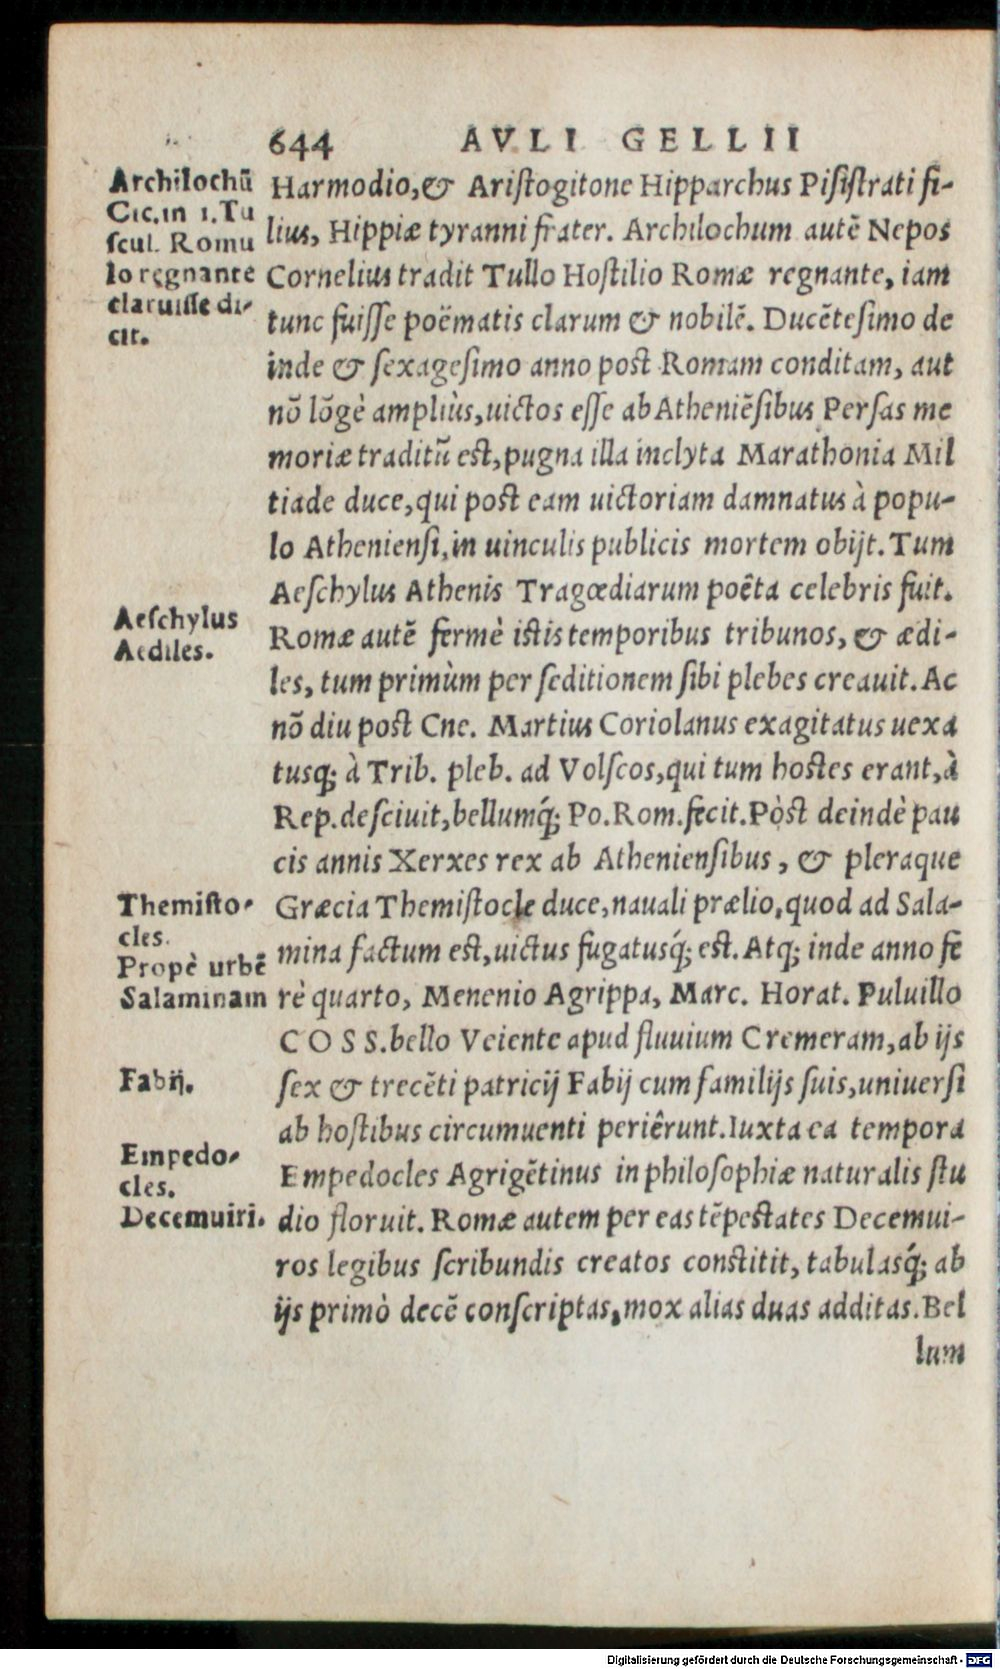 644 AVLI GELLII
Archilochū
Cic.in 1.Tu
ſcul. Romu
lo regnante
claruiſſe di-
cit.
Harmodio,& Ariſtogitone Hipparchus Piſiſtrati fi-
lius, Hippiæ tyranni frater. Archilochum autē Nepos
Cornelius tradit Tullo Hoſtilio Romæ regnante, iam
tunc fuiſſe poëmatis clarum & nobilē. Ducēteſimo de
inde & ſexageſimo anno post Romam conditam, aut
nō lōgè ampliùs,uictos eſſe ab Atheniēſibus Perſas me
moriæ traditū est,pugna illa inclyta Marathonia Mil
tiade duce,qui post eam uictoriam damnatus à popu-
lo Athenienſi,in uinculis publicis mortem obijt. Tum
Aeſchylus Athenis Tragœdiarum poêta celebris fuit.
Aeſchylus
Aediles.
Romæ autē fermè istis temporibus tribunos, & ædi-
les, tum primùm per ſeditionem ſibi plebes creauit. Ac
nō diu post Cne. Martius Coriolanus exagitatus uexa
tusq; à Trib. pleb. ad Volſcos,qui tum hostes erant,à
Rep.deſciuit,bellumq́; Po.Rom.fecit.Pòst deindè pau
cis annis Xerxes rex ab Athenienſibus, & pleraque
Themiſto-
cles.
Propè urbē
Salaminam
Græcia Themiſtocle duce,nauali prælio,quod ad Sala-
mina factum est,uictus fugatusq́; est. Atq; inde anno fe
rè quarto, Menenio Agrippa, Marc. Horat. Puluillo
COSS.bello Veiente apud fluuium Cremeram,ab ijs
Fabij.
ſex & trecēti patricij Fabij cum familijs ſuis,uniuerſi
ab hoſtibus circumuenti periêrunt.Iuxta ea tempora
Empedo-
cles.
Decemuiri.
Empedocles Agrigētinus in philoſophiæ naturalis ſtu
dio floruit. Romæ autem per eas tēpestates Decemui-
ros legibus ſcribundis creatos constitit, tabulasq́; ab
ijs primò decē conſcriptas,mox alias duas additas.Bel
lum
Digitalisierung gefördert durch die Deutsche Forschungsgemeinschaft - DFG